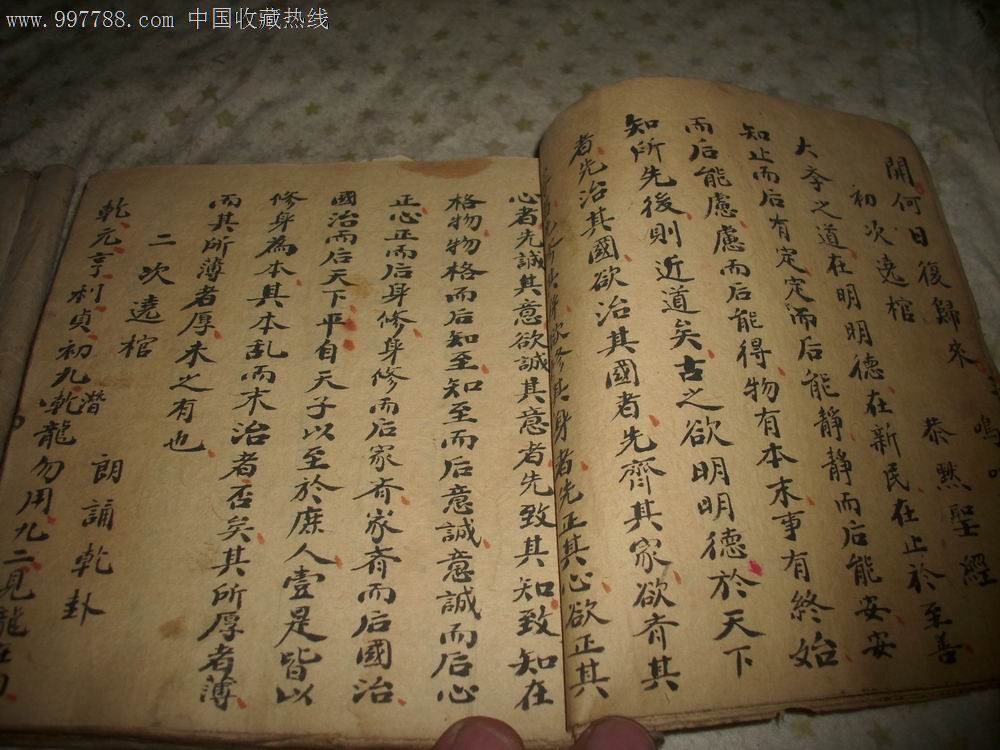 www.997788.com 中国收藏热线
嗚
開何日復歸來
初次遶棺 恭黙聖經
大斈之道在明明德在新民在止於至善
知止而后有定定而后能靜靜而后能安安
而后能慮慮而后能得物有本末事有終始
知所先後則近道矣古之欲明明德於天下
者先治其國欲治其國者先齊其家欲斉其
其身欲修其身者先正其心欲正其
心者先誠其意欲誠其意者先致其知致知在
格物物格而后知至知至而后意誠意誠而后心
正心正而后身修身修而后家斉家斉而后國治
國治而后天下平自天子以至於庶人壹是皆以
修身為本其本乱而末治者否矣其所厚者薄
而其所薄者厚未之有也
二次遶棺 朗誦乾卦
乾元亨利貞初九潛龍勿用九二見龍在